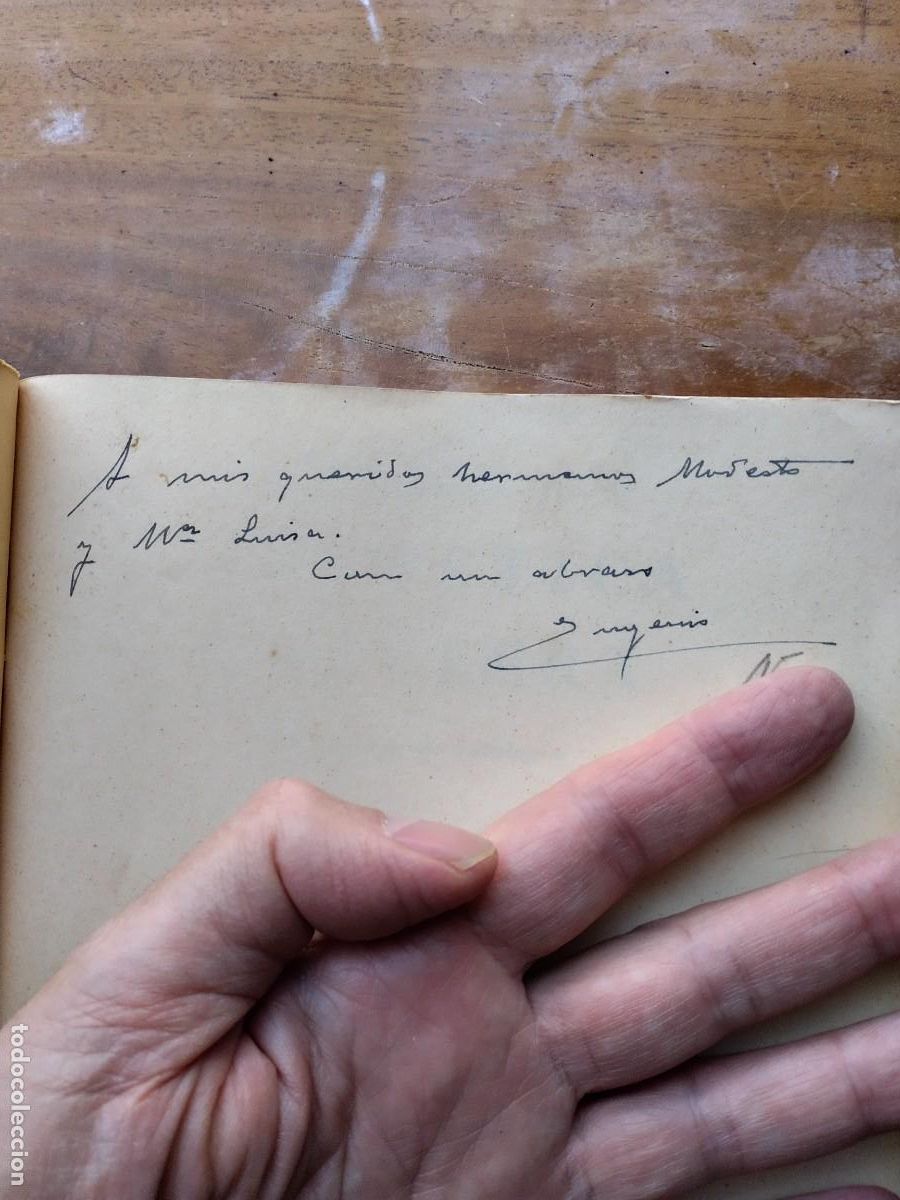 A mis queridos hermanos Modesto
y Mª Luisa.
Con un abrazo
Eugenio
todocoleccion